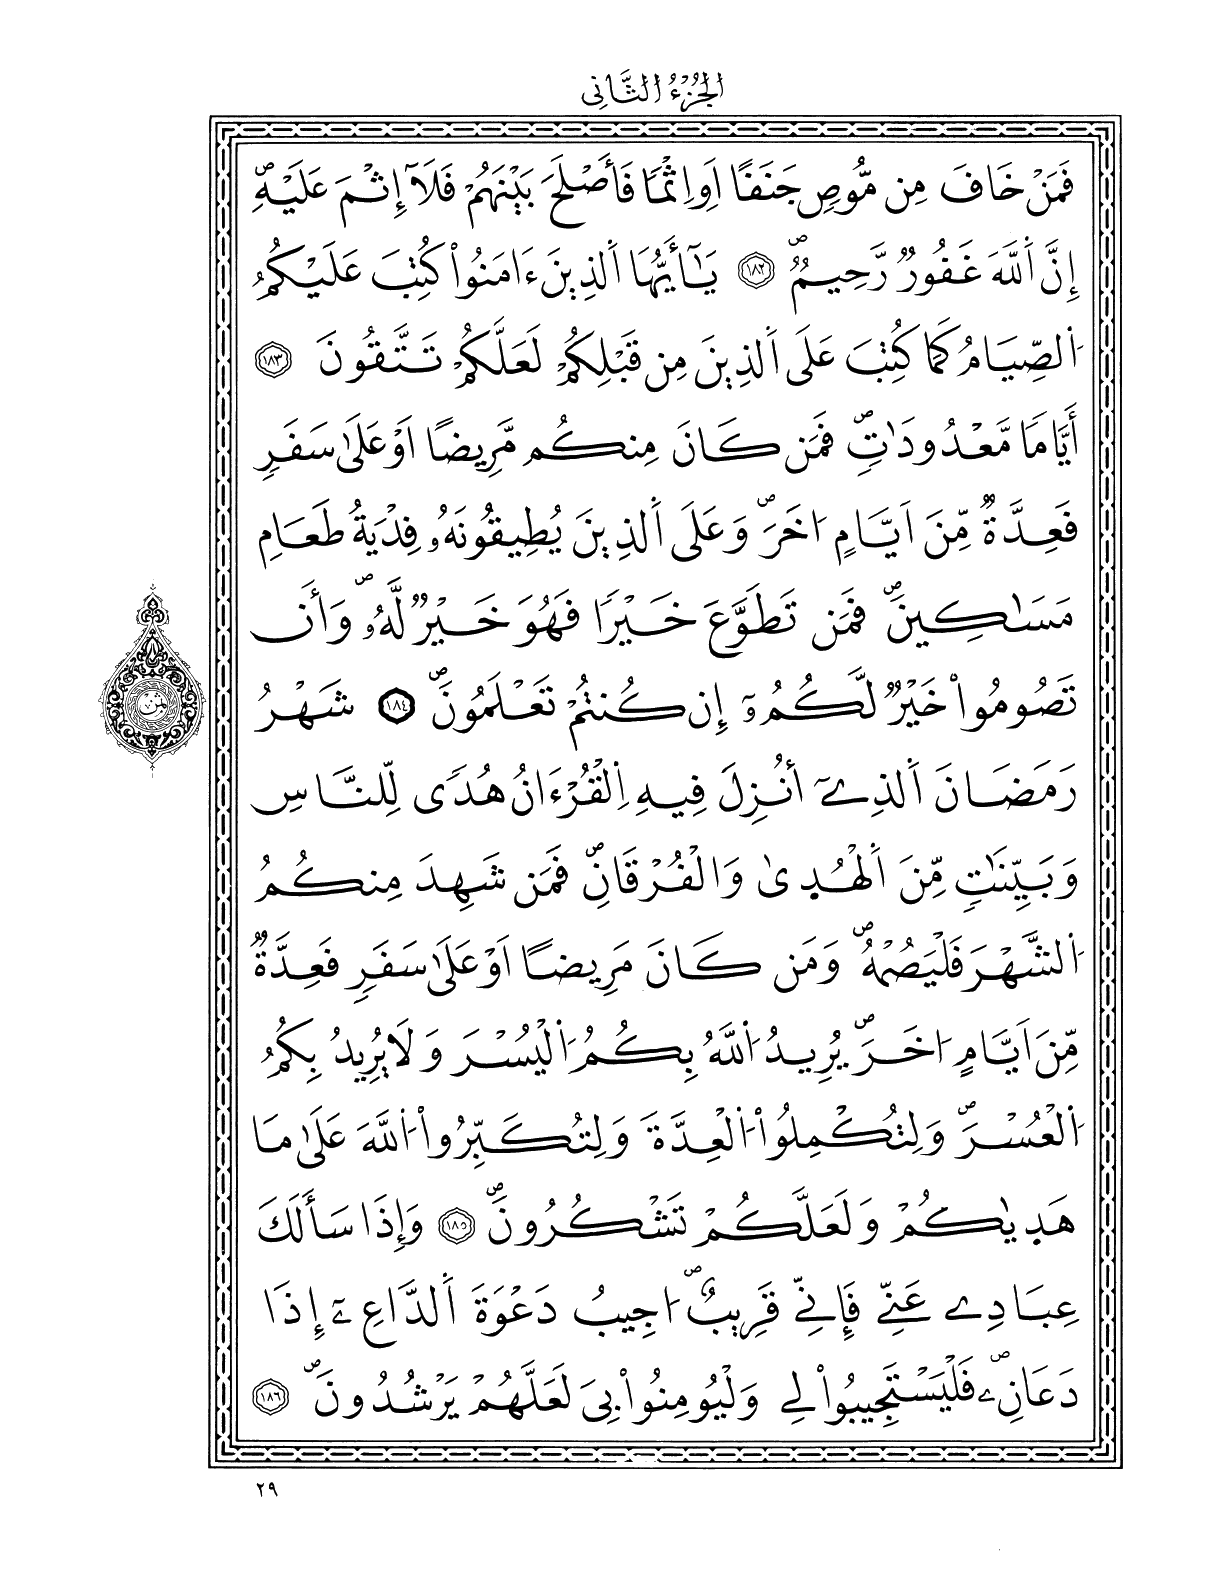 الجُزْءُ الثَّانِي
فَمَنْ خَافَ مِن مُّوصٍ جَنَفًا اَوِ اِثْمًا فَأَصْلَحَ بَيْنَهُمْ فَلَآ إِثْمَ عَلَيْهِۖ
إِنَّ اَ۬للَّهَ غَفُورٞ رَّحِيمٞۖ ١٨٢ يَٰٓأَيُّهَا اَ۬لذِينَ ءَامَنُواْ كُتِبَ عَلَيْكُمُ
اُ۬لصِّيَامُ كَمَا كُتِبَ عَلَى اَ۬لذِينَ مِن قَبْلِكُمْ لَعَلَّكُمْ تَتَّقُونَ ١٨٣
أَيَّاماٗ مَّعْدُودَٰتٖۖ فَمَن كَانَ مِنكُم مَّرِيضًا اَوْ عَلَىٰ سَفَرٖ
فَعِدَّةٞ مِّنَ اَيَّامٍ اُخَرَۖ وَعَلَى اَ۬لذِينَ يُطِيقُونَهُۥ فِدْيَةُ طَعَامِ
مَسَٰكِينَۖ فَمَن تَطَوَّعَ خَيْراٗ فَهُوَ خَيْرٞ لَّهُۥۖ وَأَن
تَصُومُواْ خَيْرٞ لَّكُمُۥٓ إِن كُنتُمْ تَعْلَمُونَۖ ١٨٤ شَهْرُ
رَمَضَانَ اَ۬لذِےٓ أُنزِلَ فِيهِ اِ۬لْقُرْءَانُ هُدىٗ لِّلنَّاسِ
وَبَيِّنَٰتٖ مِّنَ اَ۬لْهُد۪ىٰ وَالْفُرْقَانِۖ فَمَن شَهِدَ مِنكُمُ
اُ۬لشَّهْرَ فَلْيَصُمْهُۖ وَمَن كَانَ مَرِيضًا اَوْ عَلَىٰ سَفَرٖ فَعِدَّةٞ
مِّنَ اَيَّامٍ اُخَرَۖ يُرِيدُ اُ۬للَّهُ بِكُمُ اُ۬لْيُسْرَ وَلَا يُرِيدُ بِكُمُ
اُ۬لْعُسْرَۖ وَلِتُكْمِلُواْ اُ۬لْعِدَّةَ وَلِتُكَبِّرُواْ اُ۬للَّهَ عَلَىٰ مَا
هَد۪يٰكُمْ وَلَعَلَّكُمْ تَشْكُرُونَۖ ١٨٥ وَإِذَا سَأَلَكَ
عِبَادِے عَنِّے فَإِنِّے قَرِيبٌۖ اُجِيبُ دَعْوَةَ اَ۬لدَّاعِۦٓ إِذَا
دَعَانِۦۖ فَلْيَسْتَجِيبُواْ لِے وَلْيُومِنُواْ بِيَ لَعَلَّهُمْ يَرْشُدُونَۖ ١٨٦
ثمن
٢٩